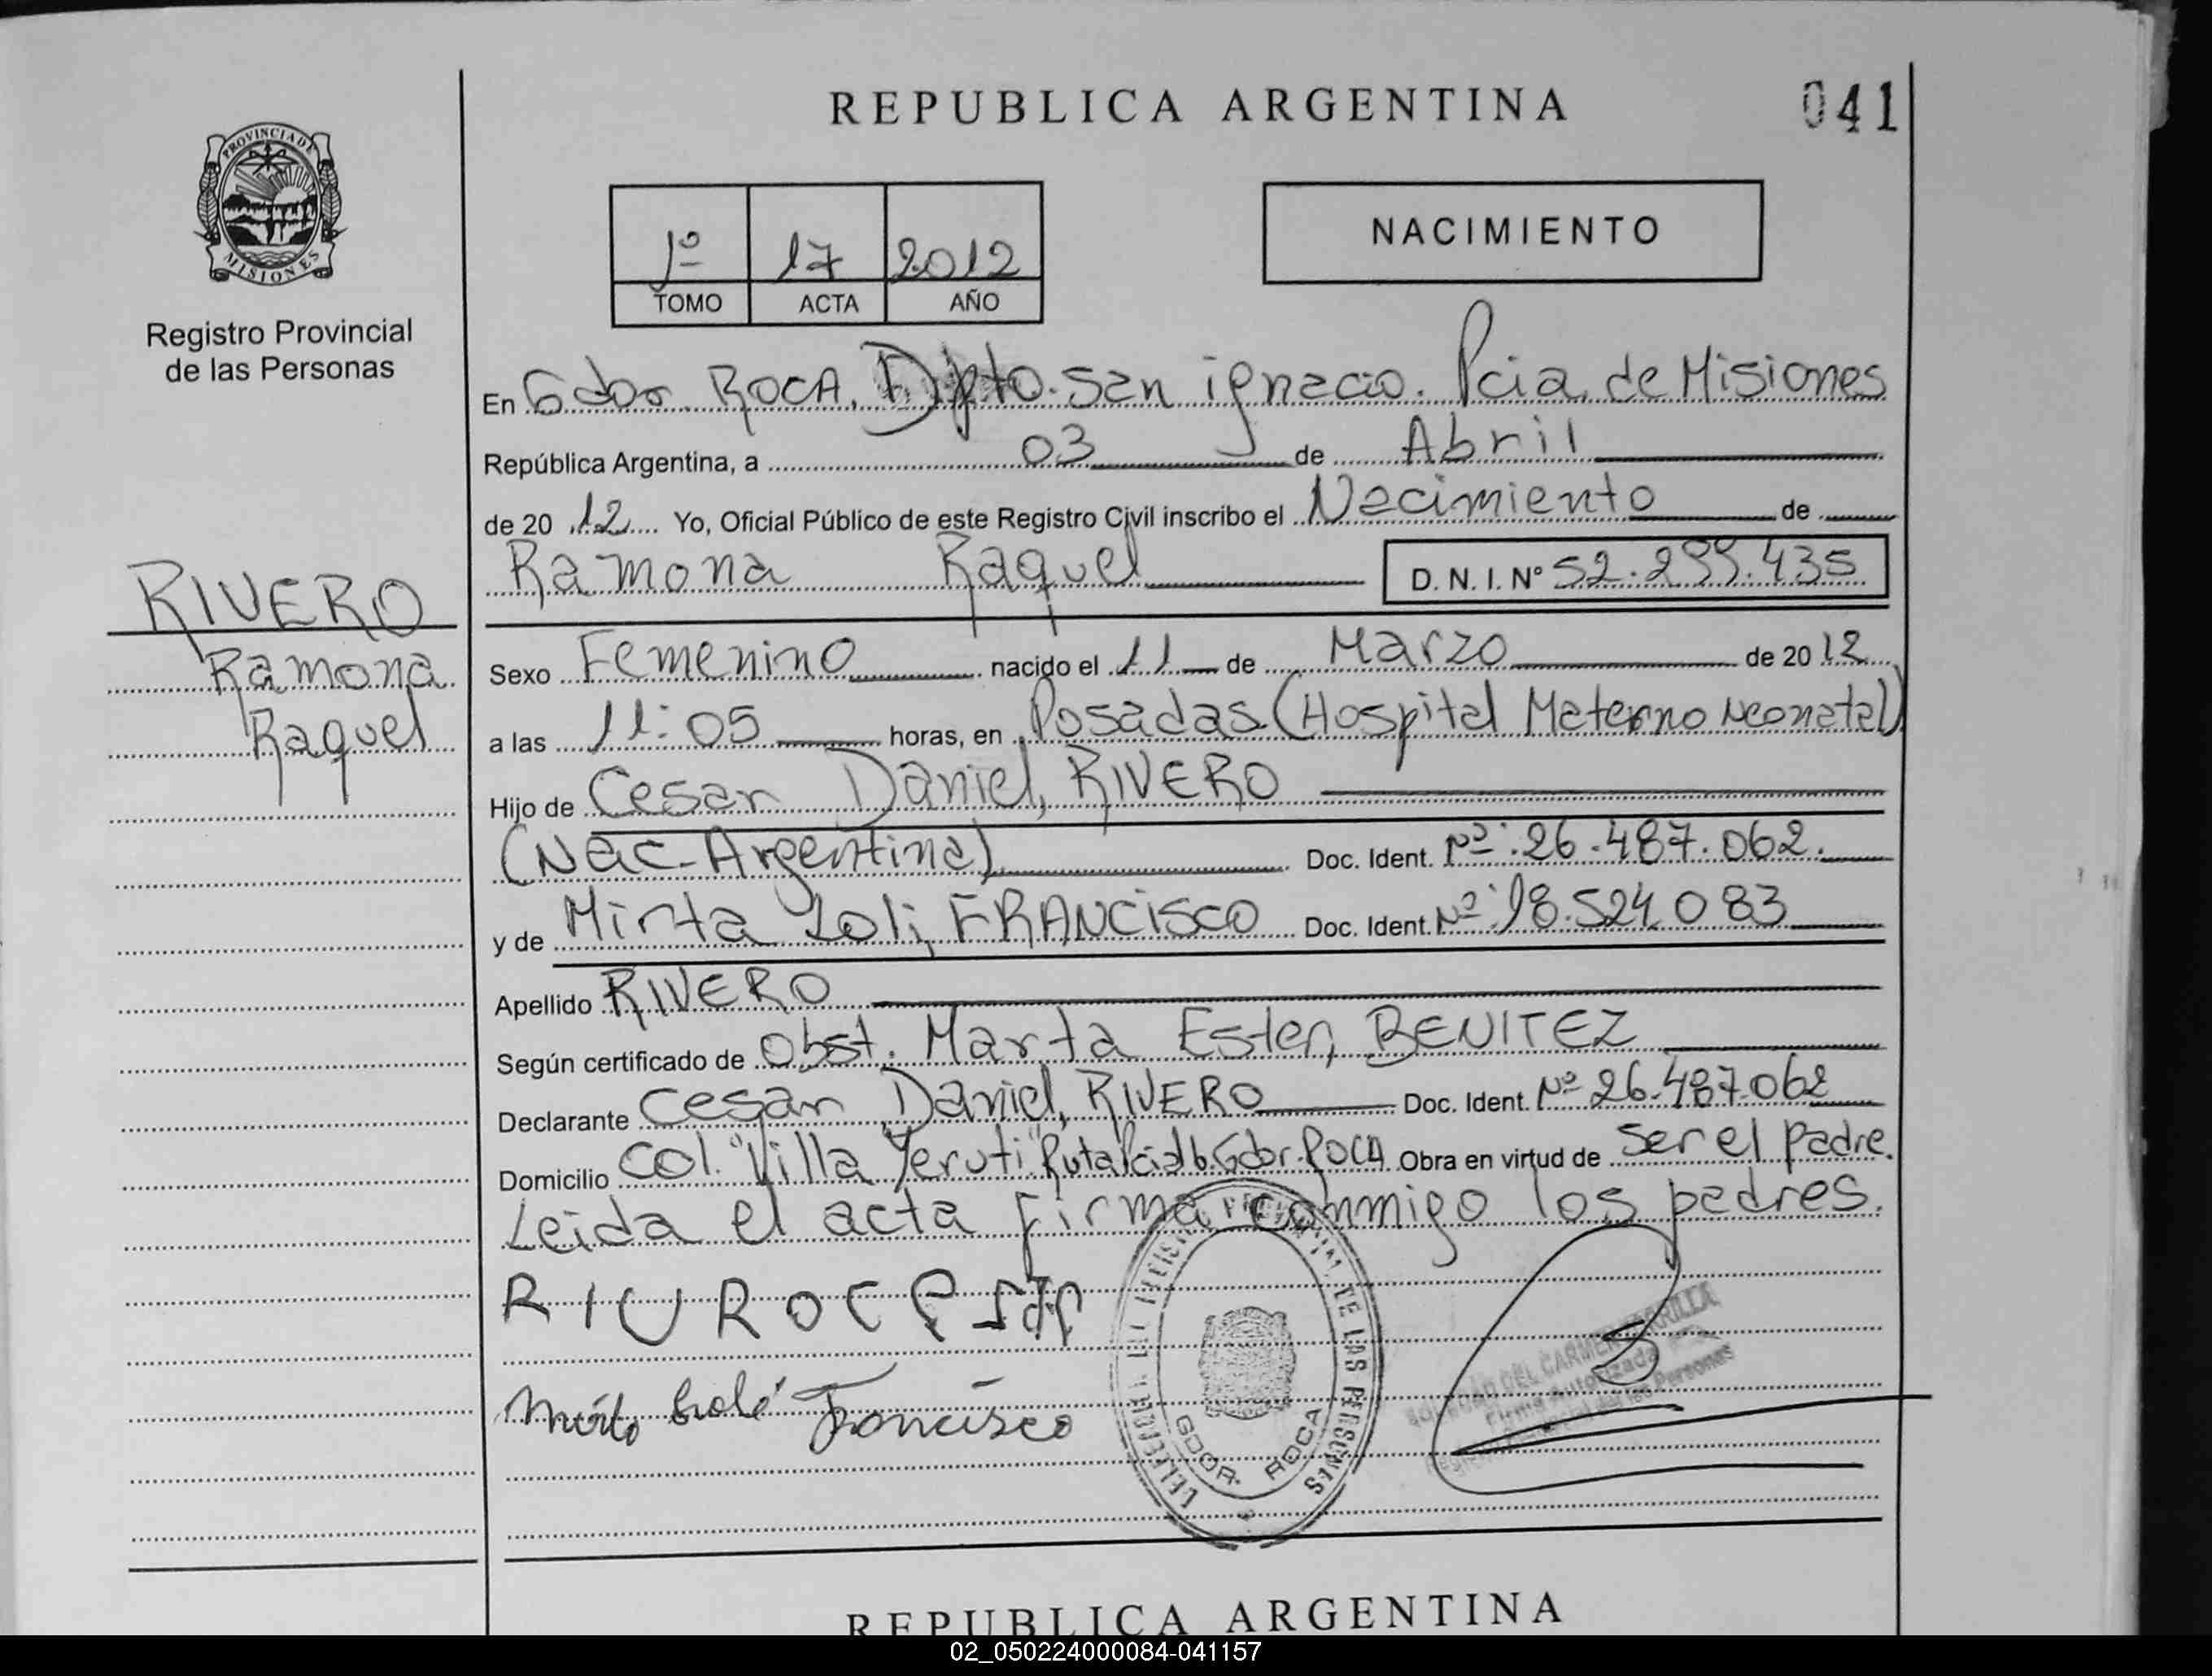 REPUBLICA ARGENTINA
041
PROVINCIA DE
MISIONES
Registro Provincial
de las Personas
1º 17 2012
TOMO ACTA AÑO
NACIMIENTO
En Gdor. ROCA, Dpto. San ignacio. Pcia. de Misiones
República Argentina, a 03 de Abril
de 20 12 Yo, Oficial Público de este Registro Civil inscribo el Nacimiento de
Ramona Raquel D. N. I. Nº 52.299.435
RIVERO
Ramona
Raquel
Sexo Femenino nacido el 11 de Marzo de 20 12
a las 11:05 horas, en Posadas (Hospital Materno Neonatal)
Hijo de Cesar Daniel, RIVERO
(Nac-Argentina) Doc. Ident. Nº: 26.487.062.
y de Mirta Loli, FRANCISCO Doc. Ident. Nº: 18.524.083
Apellido RIVERO
Según certificado de Obst. Marta Ester, BENITEZ
Declarante Cesar Daniel, RIVERO Doc. Ident. Nº 26.487.062
Domicilio Col. "Villa Yeruti" Ruta Pcial 6. Gdor. ROCA Obra en virtud de ser el padre.
Leida el acta firma conmigo los padres.
Francisco
DE LAS PERSONAS
GDOR. ROCA
DEL CARMEN
Firma Autorizada
de las Personas
REPUBLICA ARGENTINA
02_050224000084-041157